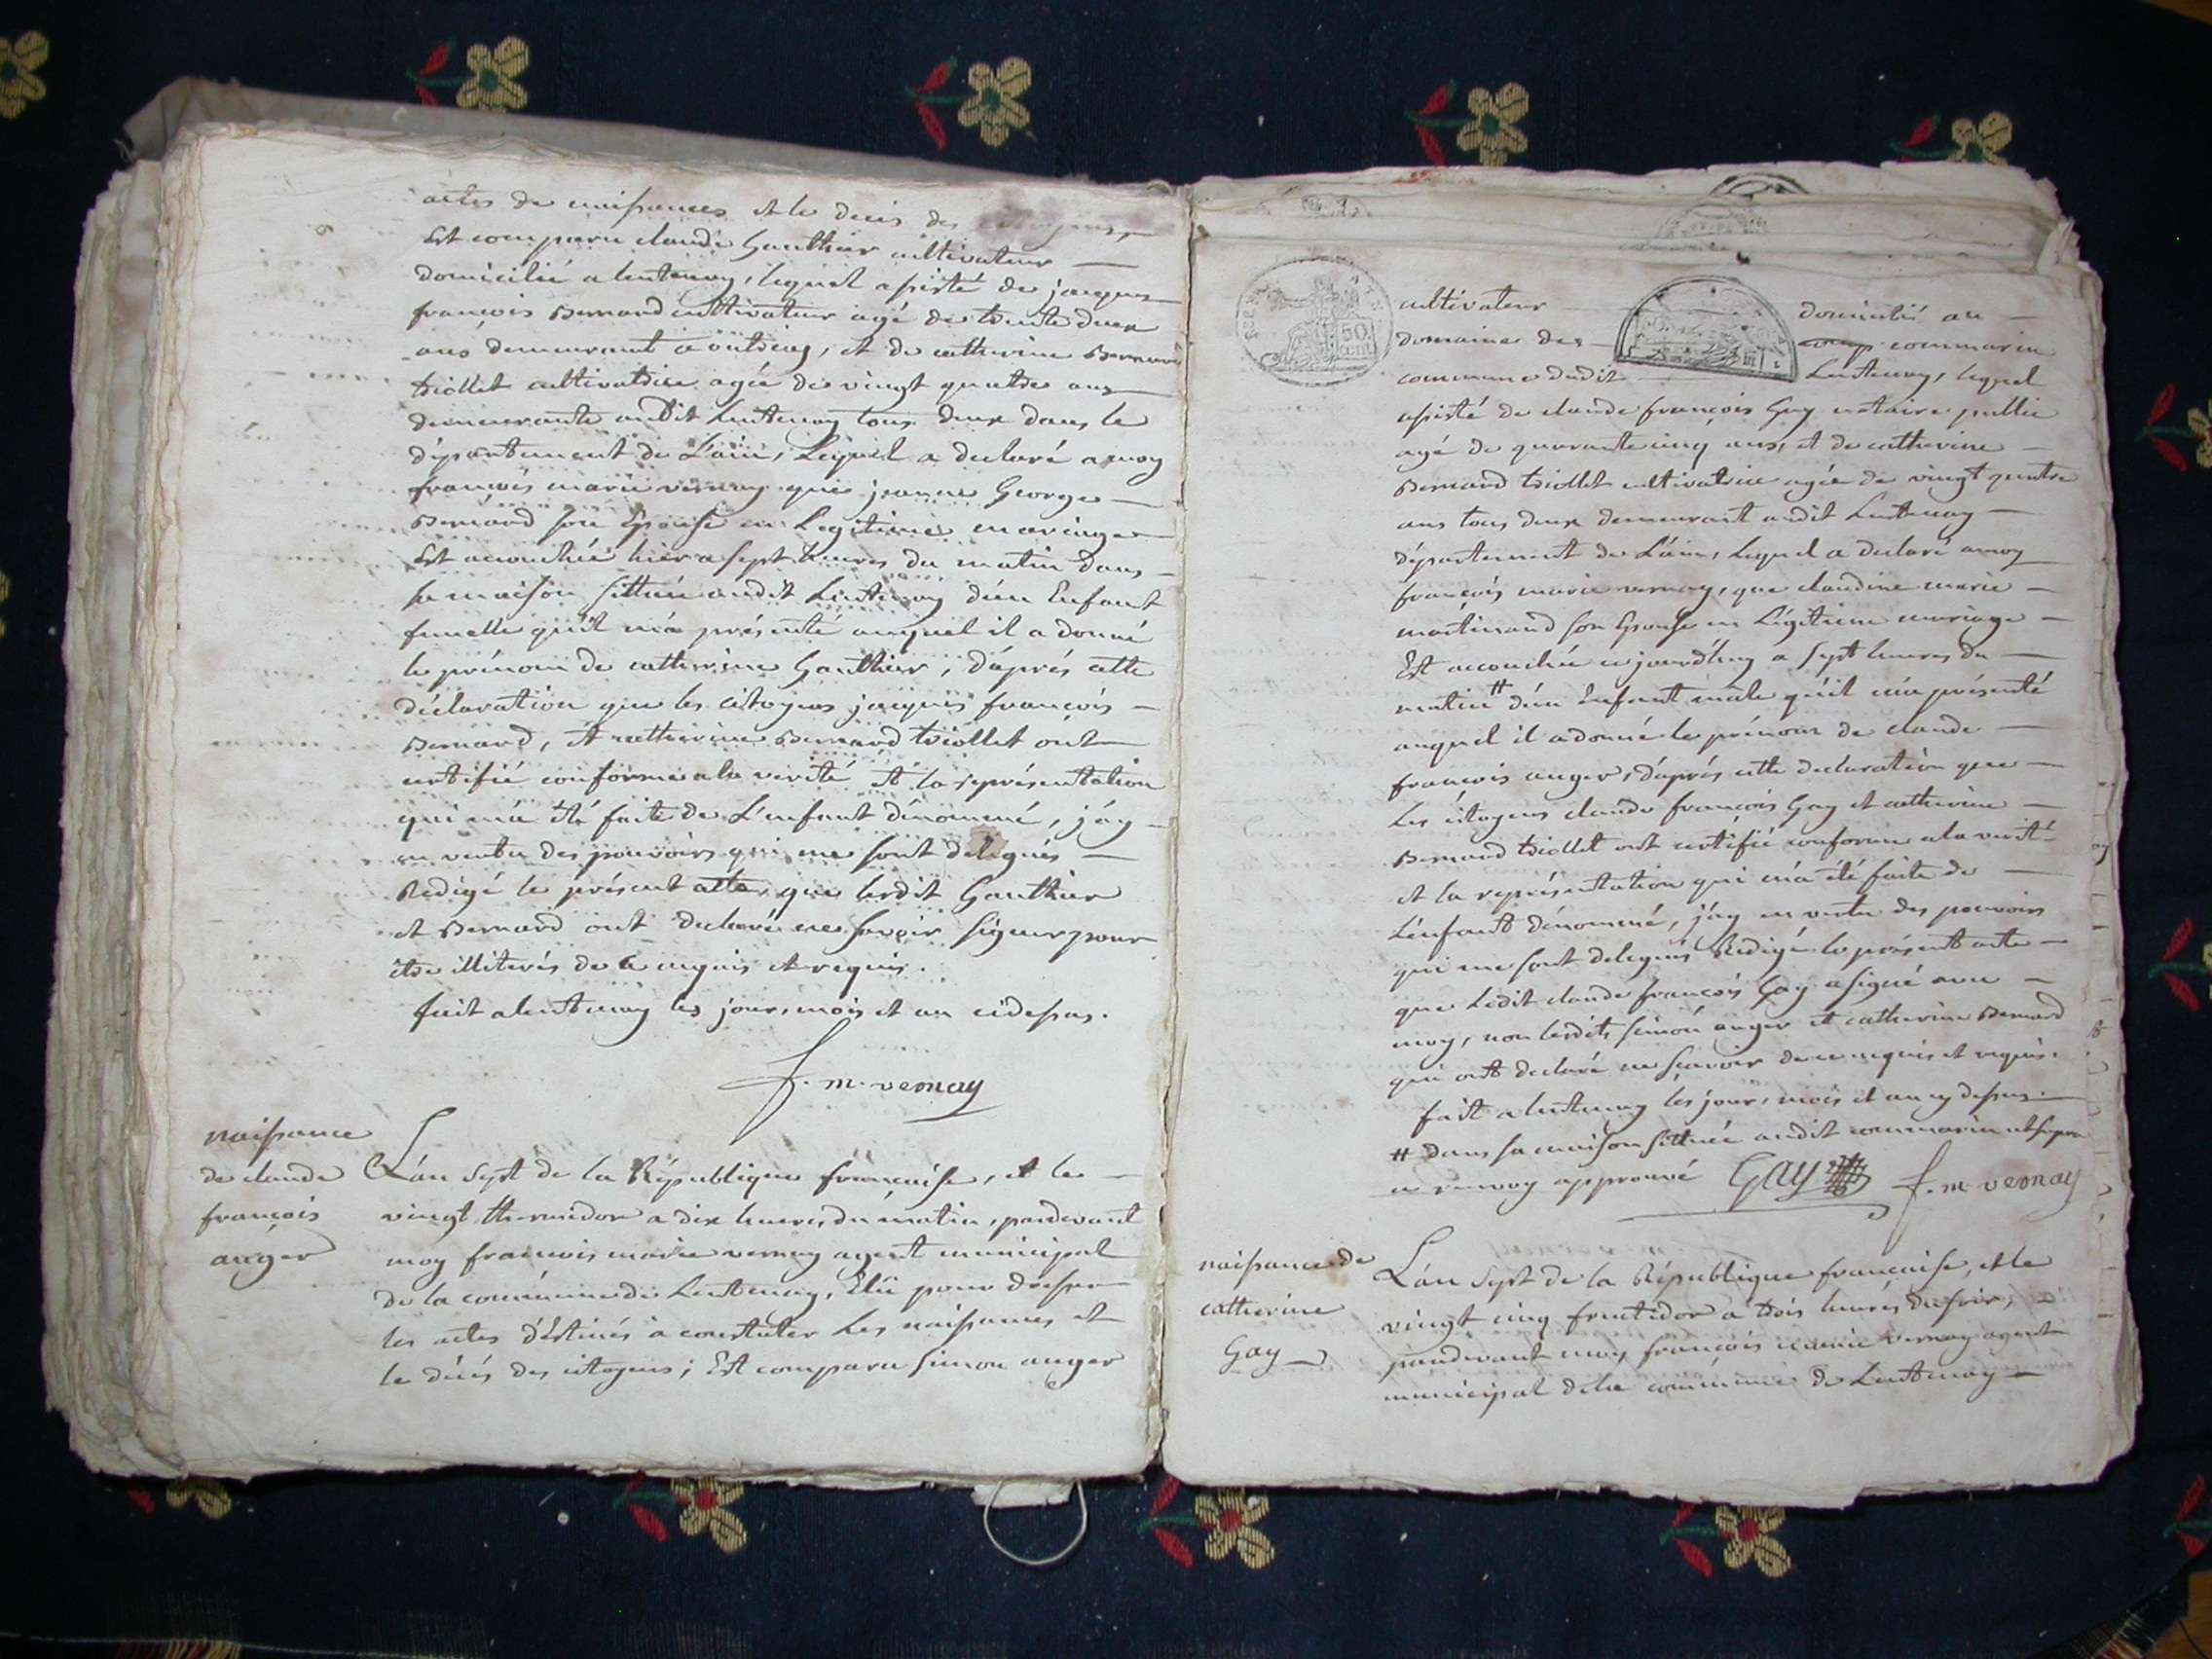 actes de naissances et le deces des citoyens,
Est comparu claude Gauthier cultivateur
domicilié a lentenay, lequel assisté de jacques
françois Bernard cultivateur agé de trente deux
ans demeurant a outriaz, et de catherine Bernard
triollet cultivatrice agée de vingt quatre ans
demeurante audit Lentenay tous deux dans le
département de L'ain, Lequel a declaré a moy
françois marie vernay que jeanne George
Bernard son Epouse en Legitime mariage
Est accouchée hier a sept heures du matin dans
sa maison sittuée audit Lentenay d'un Enfant
femelle qu'il m'a présenté auquel il a donné
le prénom de catherine Gauthier, d'aprés cette
déclaration que les citoyens jacques françois
Bernard, et catherine Bernard triollet ont
certifié conforme a la verité et la représentation
qui m'a été faite de L'enfant dénommé, j'ay
en vertu des pouvoirs qui me sont delegués
Redigé le présent acte, que lesdit Gauthier
et Bernard ont declaré ne savoir signer pour
être illiterés de ce enquis et requis.
fait a lentenay les jour, mois et an cidessus.
f. m. vernay
naissance
de claude
françois
auger
L'an sept de la République française, et le
vingt thermidor a dix heures du matin, pardevant
moy francois marie vernay agent municipal
de la commune de Lentenay, Elû pour dresser
les actes d'Estinés à constater Les naissances et
le décés des citoyens; Est comparu simon auger
50
cent
cultivateur domicilié au
domaine des commarin
commune dudit Lentenay, lequel
assisté de claude françois Gay notaire public
agé de quarante cinq ans, et de catherine
Bernard triollet cultivatrice agée de vingt quatre
ans tous deux demeurant audit Lentenay
département de L'ain, Lequel a declaré a moy
françois marie vernay, que claudine marie
martinand son Epouse en Légitime mariage
Est accouchée cejourd'huy a sept heures du
matin # d'un Enfant mâle qu'il m'a présenté
auquel il a donné le prénom de claude
françois auger, d'aprés cette declaration que
Les citoyens claude françois Gay et catherine
Bernard triollet ont certifié conforme a la verité
et la représentation qui m'a été faite de
L'enfant dénommé, j'ay en vertu des pouvoirs
qui me sont delegués Redigé le présent acte
que Ledit claude françois Gay a signé avec
moy, non lesdits simon auger et catherine Bernard
qui ont declaré ne scavoir de ce enquis et requis.
fait a lentenay les jour, mois et an cy dessus.
# dans sa maison sittuée audit commarin ut supra
ce renvoy approuvé GAY f. m vernay
naissance de
catherine
Gay
L'an sept de la République francaise, et le
vingt cinq fructidor a trois heures du soir,
pardevant moy françois marie vernay agent
municipal de la commune de Lentenay